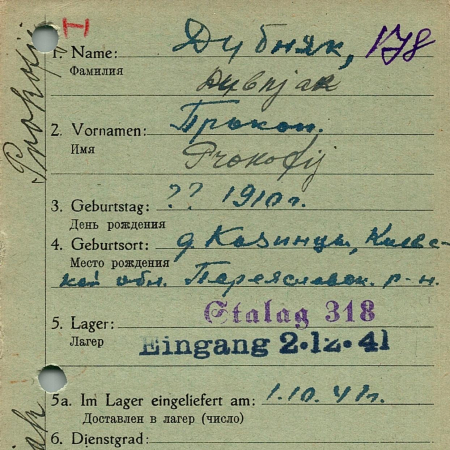 1. Name: Дубняк, 178
Фамилия
Dybnjak
2. Vornamen: Прокоп.
Имя
Prokofij
3. Geburtstag: ?? 1910 г.
День рождения
4. Geburtsort: д. Козинцы, Киевс-
Место рождения
кой обл. Переяславск. р-н.
Stalag 318
5. Lager:
Лагер
Eingang 2.12.41
5a. Im Lager eingeliefert am: 1.10.41 г.
Доставлен в лагер (число)
6. Dienstgrad:
Prokofij